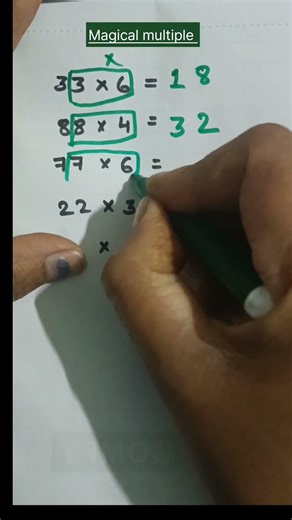 Magical multiple
x
33 × 6 = 18
88 × 4 = 32
77 × 6 =
22 × 3
×